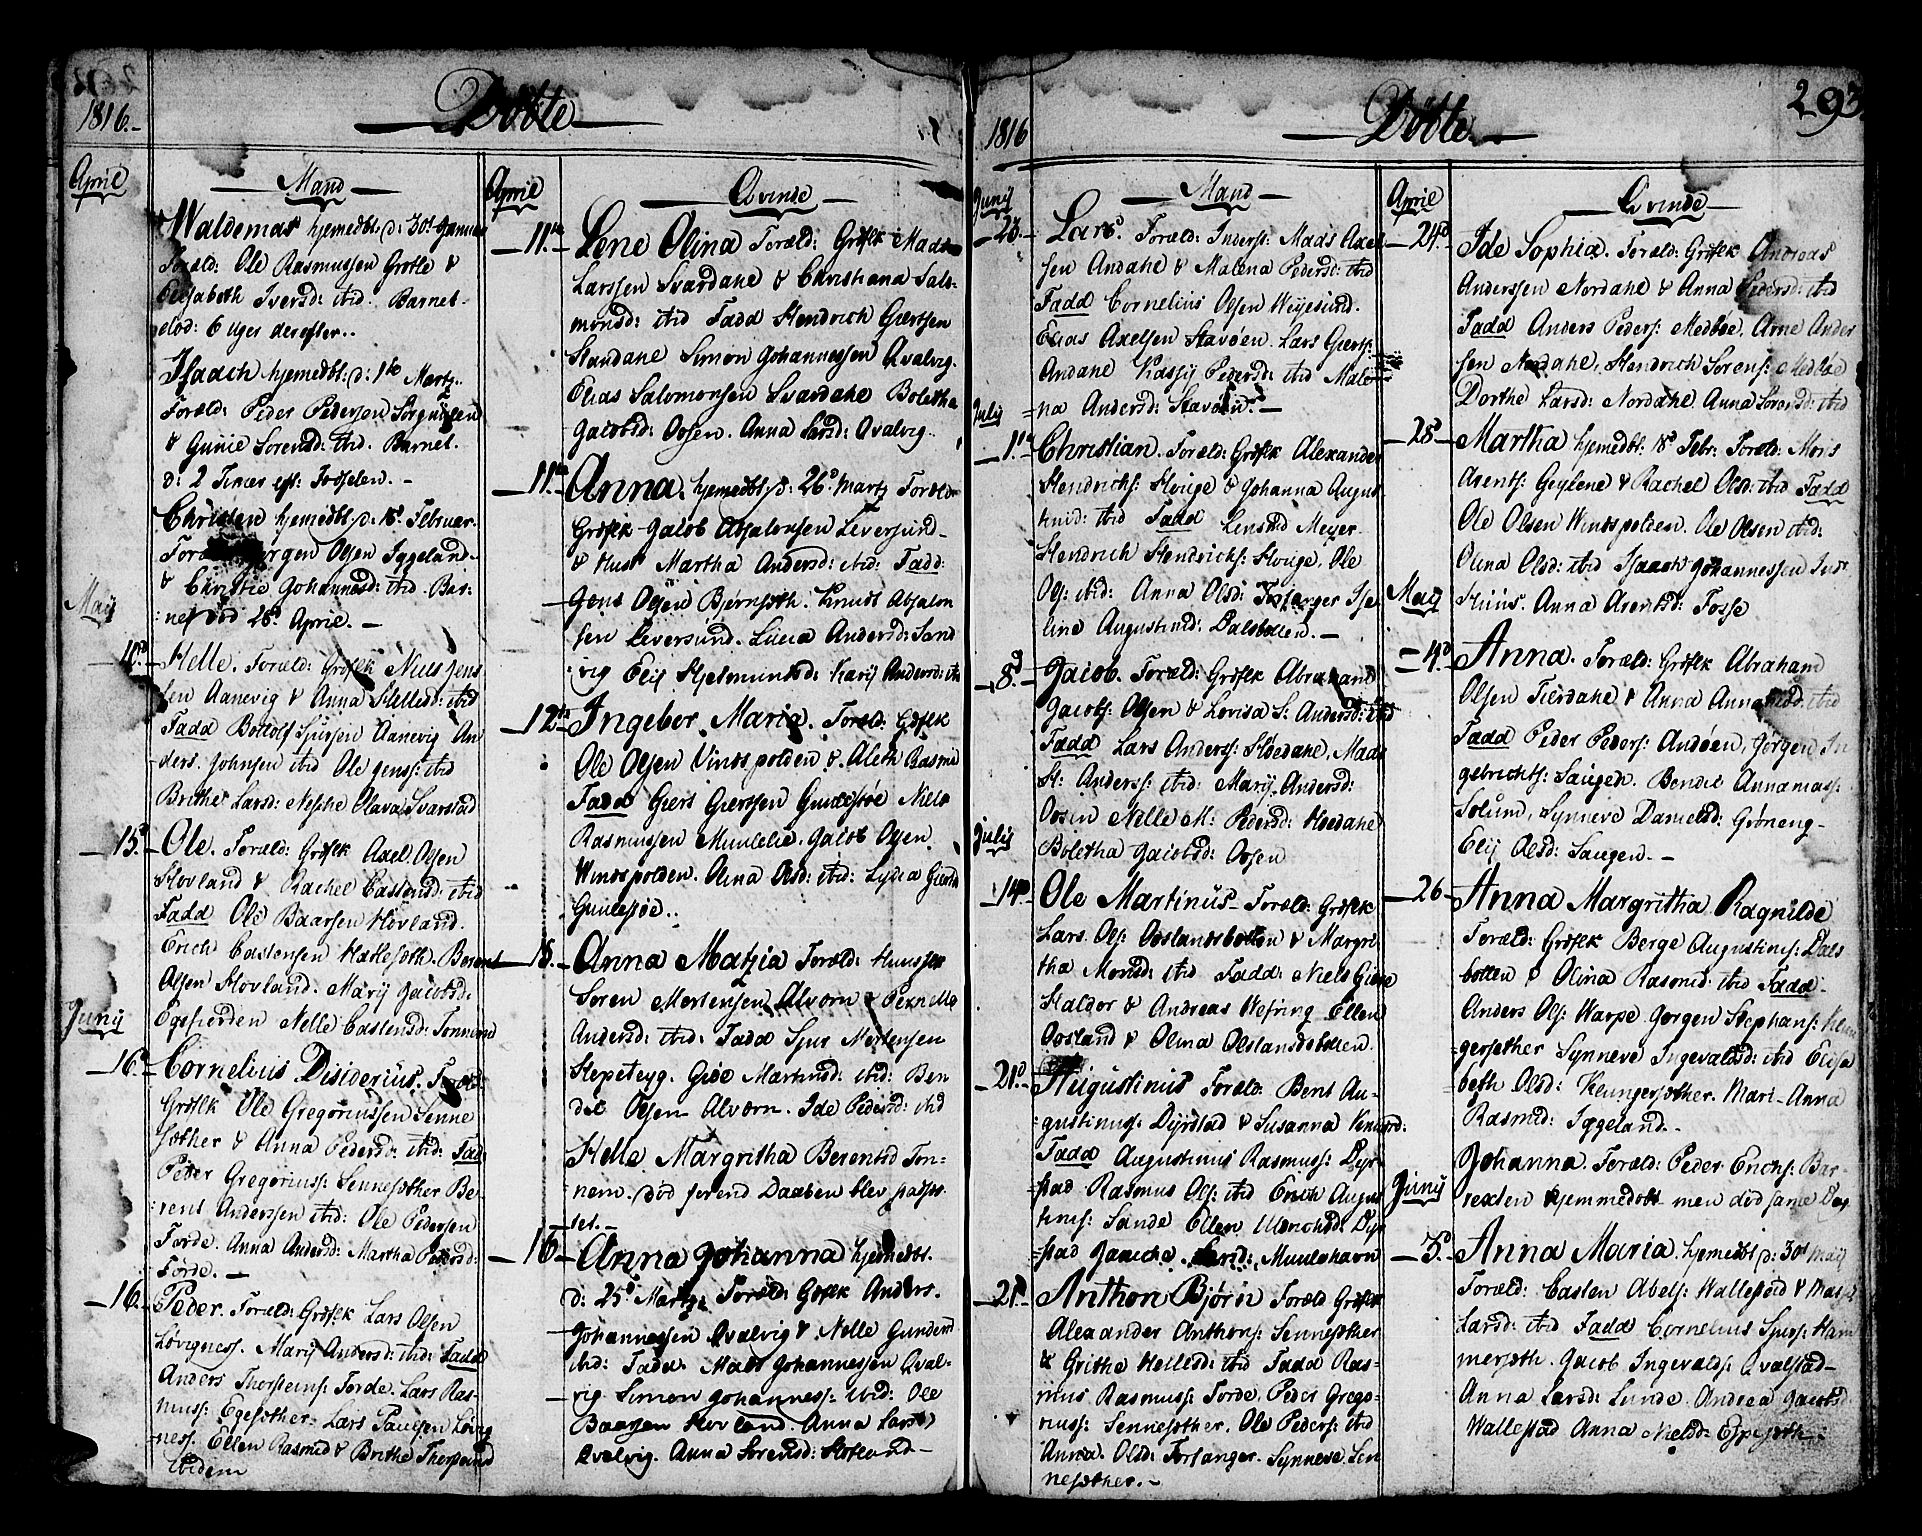 1816.
Döbte
April
Mand
Waldemar hjemedbt: d: 30t Januar
Foræld: Ole Rasmussen Grotle &
Elisabeth Iversd: ibid. Barnet
död: 6 Uger derefter..
Isaach hjemedbt: d: 1te Martz.
Foræld: Peder Pedersen
& Gunie Sörensd: ibid. Barnet
d: 2 Timer eft: Födselen. -
Christen hjemedbt: d: 18d Februar.
Foræld: Jörgen Olsen Iggeland
& Christie Johannesd: ibid. Bar-
net död 28d April. -
Maij
Helle. Foræld: Gröflk Niels Jens
sen Aanevig & Anna Helled: ibid
Fadd Bottolf Sjursen Aanevig An
ders Johnsen ibid Ole Jenss: ibid
Brithe Larsd: Nesche Olava Svarstad
15d Ole. Foræld: Gröflk Axel Olsen
Hovland & Rachel Castensd: ibid
Fadd Ole Baarsen Hovland.
Erich Castensen Berent
Olsen Hovland. Marij Jacobsd:
Egefierden Nelle Castensd: Tonnend
Junij
16d Cornelius Disiderius. Foræld:
Gröflk Ole Gregoriussen Senne
sæther & Anna Pedersd: ibid: Fad:
Peder Gregoriuss: Sennesæther Be-
rent Anderssen ibid: Ole Pedersen
Förde. Anna Andersd: Martha Pedersd:
Förde. -
16. Peder. Foræld: Gröflk Lars Olsen
Lövigness. Marij Andersd: ibid: Fadd
Anders Thorsteins: Förde. Lars Ras-
muss: Egesæther. Lars Paulsen Lövig
ness. Ellen Rasmd & Brithe Thorsteind
ibidem
April
Qvinde
11te Lene Olina Foræld: Gröflk Mads
Larssen Svardahl & Christiana Salo-
monsd: ibid Fadd Hendrich Giertsen
Standahl Simon Johannessen Qvalvig.
Elias Salomonsen Svardahl Boletha
Jacobsd: Ossen. Anna Larsd: Qvalvig.
11te Anna. hjemedbt: d: 26d Martz Foræld
Gröflk Jacob Absalonsen Liversund
& Hust Martha Andersd: ibid: Fadd:
Jens Olsen Björnseth. Knudt Absalon
sen Liversund. Lucia Andersd: Sand
vig Elij Hjelmundsd: Karij Andersd: ib
12te Ingebor Maria. Foræld: Gröflk
Ole Olsen Vindspolden & Aleth Rasmd
Fadd Giert Giertsen Gunlesöe Niels
Rasmussen Munlelie. Jacob Olsen.
Windspolden. Olina Olsd: ibid: Lydia Giertsd
Gunlesöe..
18. Anna Matzia Foræld: Huusfk
Sören Mortensen Alvörn & Pernille
Andersd: ibid: Fadd Sjur Mortensen
Gide Martinsd: ibid: Ben
dit Olsen Alvörn. Ide Pedersd: ibid
Helle Margritha Berentsd Ton-
nem. död förend Daaben blev
tet. -
16 Anna Johanna hjemedbt.
d: 25d Martz. Foræld: Gröflk Anders.
Johannessen Qvalvig & Nelle Gunders
ibid: Fadd. Mads Johannessen Qval-
vig Simon Johanness: ibid: Ole
Baarsen Hovland Anna Larsd
Qvalvig. Anna Sörensd: Hovland -
1816
Döbte
293.
Junij
Mand
23. Lars. Foræld: Inderst: Mads Axel
sen Andahl & Malena Pedersd: ibid
Fadd Cornelius Olsen
Elias Axelsen Stavöen. Lars Gierts:
Andahl Pedersd: ibid Male-
na Andersd: Stavöen. -
Julij
1te Christian. Foræld: Gröflk Alexander
Hendrichs: Houge & Johanna Augus
tinid: ibid Fadd Meyer.
Hendrich Hendrichs: Houge. Ole
Ols: ibid: Anna Olsd: Ise
line Augustind: Dalsbotten. -
8d Jacob. Foræld: Gröflk Abraham
Jacobs: Ossen & Lovisa S: Andersd: ibid
Fadd Lars Anderss: Höedahl, Mads
H: Anderss: ibid: Marij Andersd:
Ossen Nelle M: Pedersd: Hoedahl
Boletha Jacobsd: Ossen
Julij
14d Ole Martinus Foræld: Gröflk
Lars Ols: Ooslandsbotten & Margri
tha Monsd: ibid Fadd: Niels
Haldor & Andreas Hefring Ellen
Oosland & Olina Oslandsbotten
21d Augustinus Foræld: Bent Au-
gustinus: Dyrstad & Susanna
Fadd Augustinus Rasmuss: Dyr
stad Rasmus Ols: ibid Erich Augus
tins: Sande Ellen Ulrichsd: Dyr
stad Larsd: Munlehavn
21d Anthon Björn Foræld Gröflk
Alexander Anthons: Sennesæther
& Grithe Helled: ibid Fadd Ras-
mus Rasmuss: Förde. Peder Grego-
rius: Sennesæther. Ole Peders: ibid
Anna. Olsd: Forfanger. Synneve Sen
nesæther. -
April
Qvinde
24d Ide Sophia. Foræld: Gröflk Andreas
Anderssen Nordahl & Anna Pedersd: ibid
Fadd Anders Peders: Medböe. Arne Ander
sen Nordahl, Hendrich Sörens: Medböe
Dorthe Larsd: Nordahl Anna Sörensd: ibid
28d Martha hjemedbt: 18d Febr: Foræld: Mons
Arents: & Rachel Olsd: ibid Fadd
Ole Olsen Windspolden. Ole Olsen ibid:
Olina Olsd: ibid Isaach Johannessen Indre
Huus. Anna Arentsd: Fosse
Maij
4d Anna. Foræld: Gröflk Abraham
Olsen Tierdahl & Anna ibid
Fadd Peder Peders: Andöen, Jörgen In
gebrichts: Saugen. Bendic Annamas:
Solund, Synneve Danielsd: Gröneng-
Elij Olsd: Saugen. -
26 Anna Margritha Ragnilde
Foræld: Gröflk Berge Augustins: Dals
botten & Olina Rasmd: ibid Fadd.
Anders Ols: Warpe Jörgen Stephans: Klun
gersæther Synneve Ingevaldsd: ibid Elisa
beth Olsd: Klungersæther. Mari-Anna
Rasmd: Iggeland. -
Johanna. Foræld: Peder Erichs: Bar-
rexten hjemmedöbt men död samme Dag
Junij
3d Anna Maria. hjemedbt d: 30d Maij
Foræld: Casten Abels: Wallestad &
Larsd: ibid Fadd Cornelius Sjurs: Ham
merseth. Jacob Ingevalds: Qvalstad
Anna Larsd: Lunde. Andrea Jacobsd:
Wallestad Anna Nielsd: Espeseth.